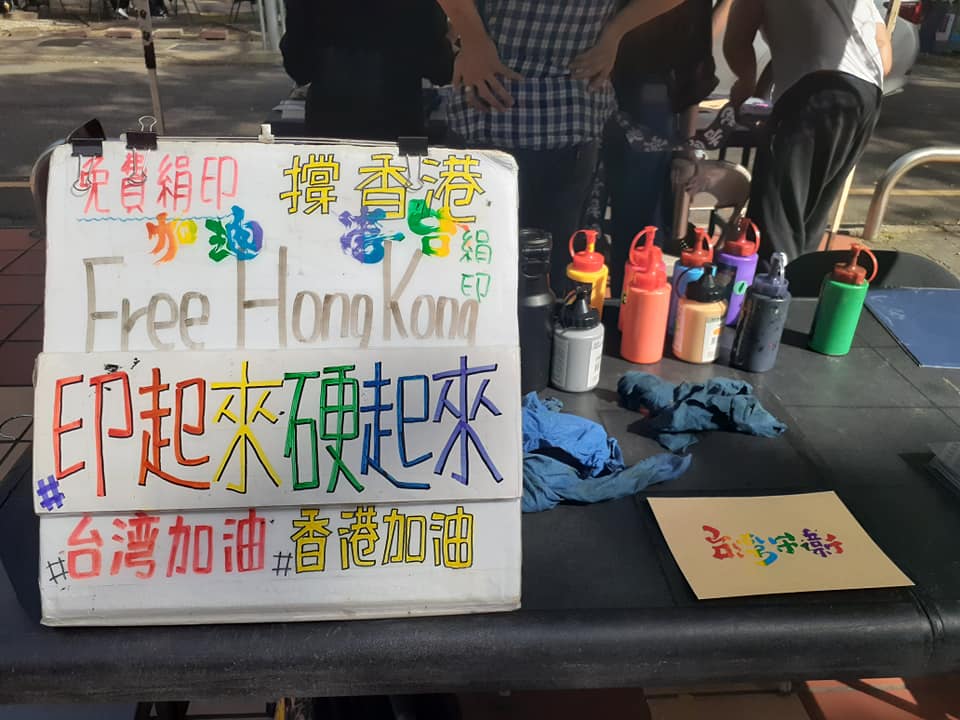 免費絹印 撐香港
加油
絹印
Free Hong Kong
#印起來硬起來
#台湾加油 #香港加油